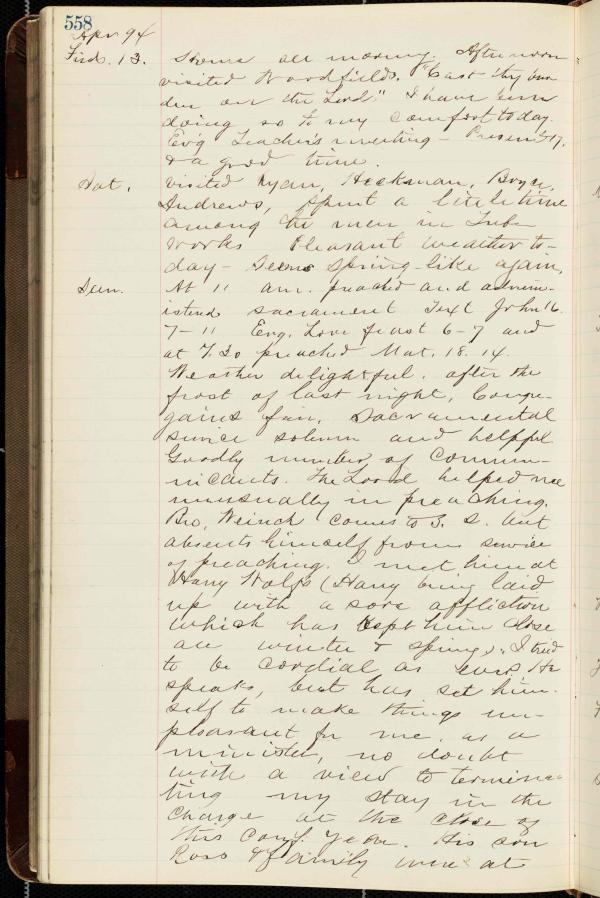 558
Apr 94
Frid. 13. Home all morning. Afternoon
visited Woodfields. "Cast thy bur
den on the Lord." I have been
doing so to my comfort today.
Ev'g Teacher's meeting - Present 17.
& a good time.
Sat. Visited Ryan, Heckman, Boyer,
Andrews, spent a little time
among the men in Tube
Works Pleasant weather to-
day - Seems Spring-like again.
Sun. At 11 am. preached and admin-
istered sacrament Text John 16.
7-11 Evg. Love feast 6-7 and
at 7.30 preached Mat. 18. 14.
Weather delightful. after the
frost of last night, Congre-
gations fair. Sacramental
service solemn and helpful
Goodly number of Commu-
nicants. The Lord helped me
unusually in preaching.
Bro. Weinch comes to S. S. but
absents himself from service
of preaching. I met him at
Harry Wolfs (Harry being laid
up with a sore affliction
which has kept him close
all winter & spring). I tried
to be cordial as ever. He
speaks, but has set him-
self to make things un-
pleasant for me. as a
minister, no doubt
with a view to termina-
ting my stay in the
charge at the close of
this Conf. Year. His son
Ross & family were at